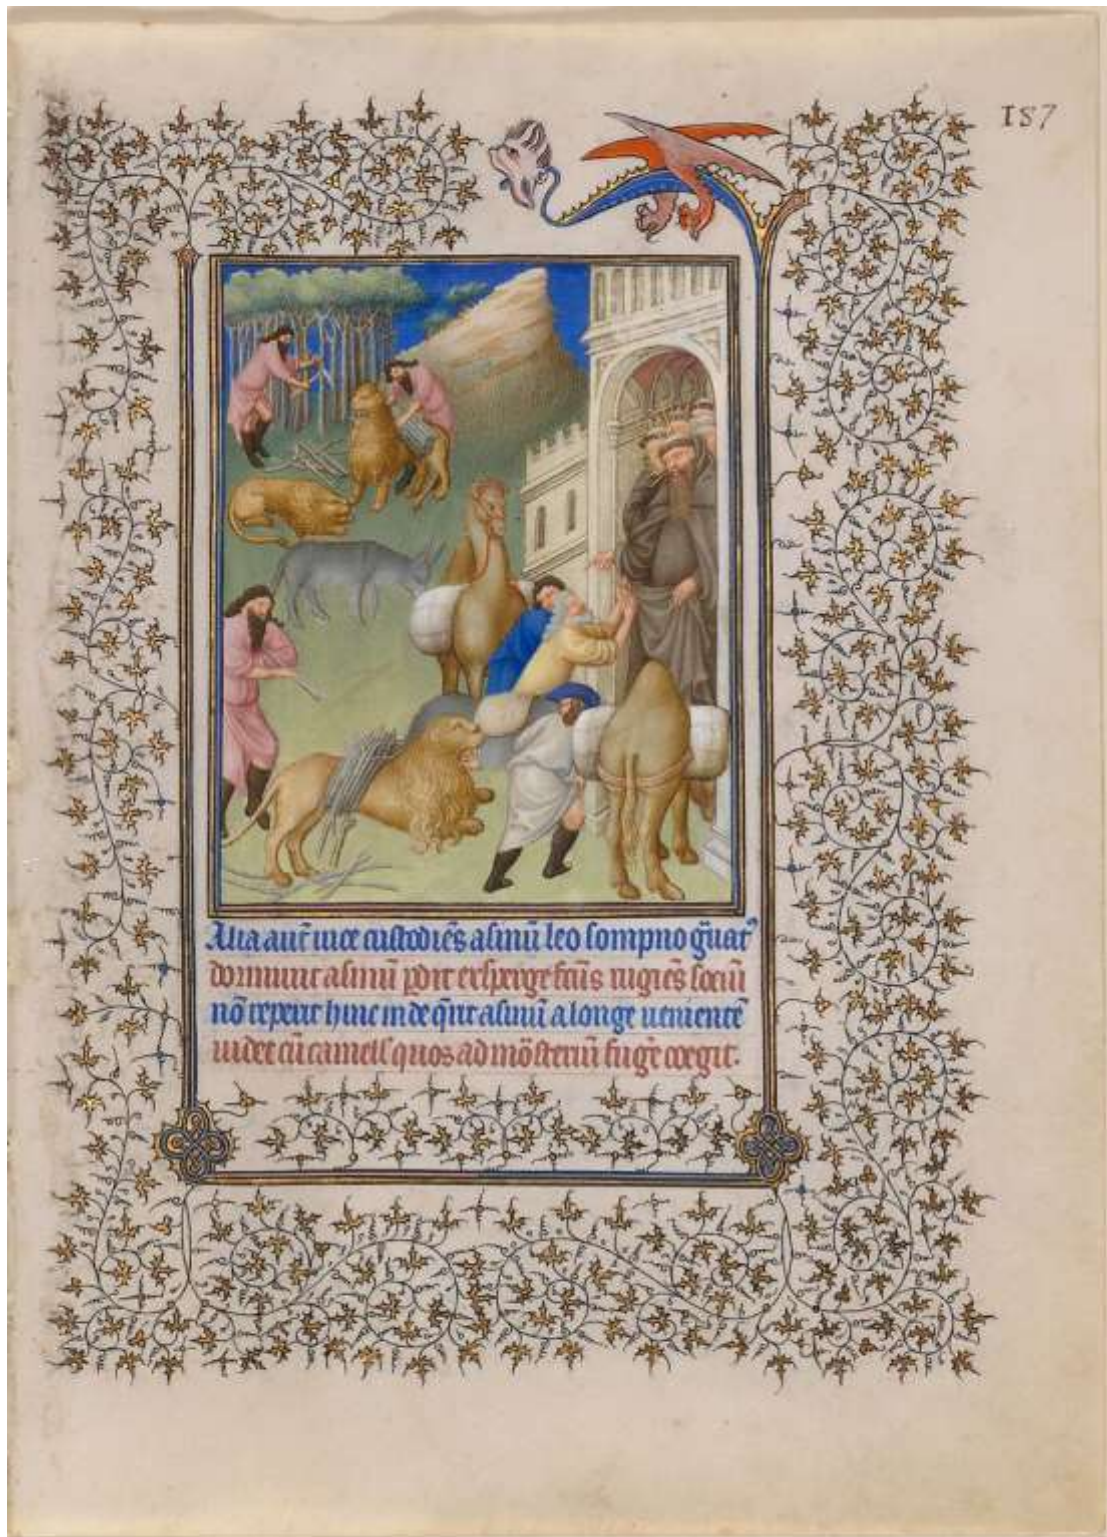 187
Alia aut̄ uice custodiēs asinū leo sompno g̃uat᾿
dormiuit asinū ꝑdit exsperge fc̄us rugiēs sociū
nō reperit hinc inde q̄rit asinū a longe uenientē
uidet cū camelꝭ quos ad mōsteriū fug̾e coegit.